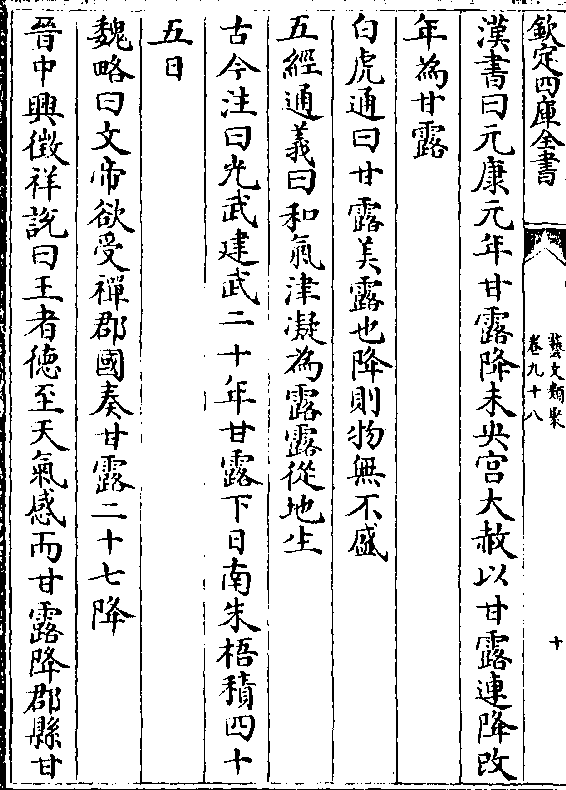 欽定四庫全書
藝文類聚
卷九十八
十
漢書曰元康元年甘露降未央宫大赦以甘露連降改
年為甘露
白虎通曰甘露美露也降則物無不盛
五經通義曰和氣津凝為露露從地生
古今注曰光武建武二十年甘露下日南朱梧積四十
五日
魏略曰文帝欲受禪郡國奏甘露二十七降
晉中興徴祥説曰王者德至天氣感而甘露降郡縣甘